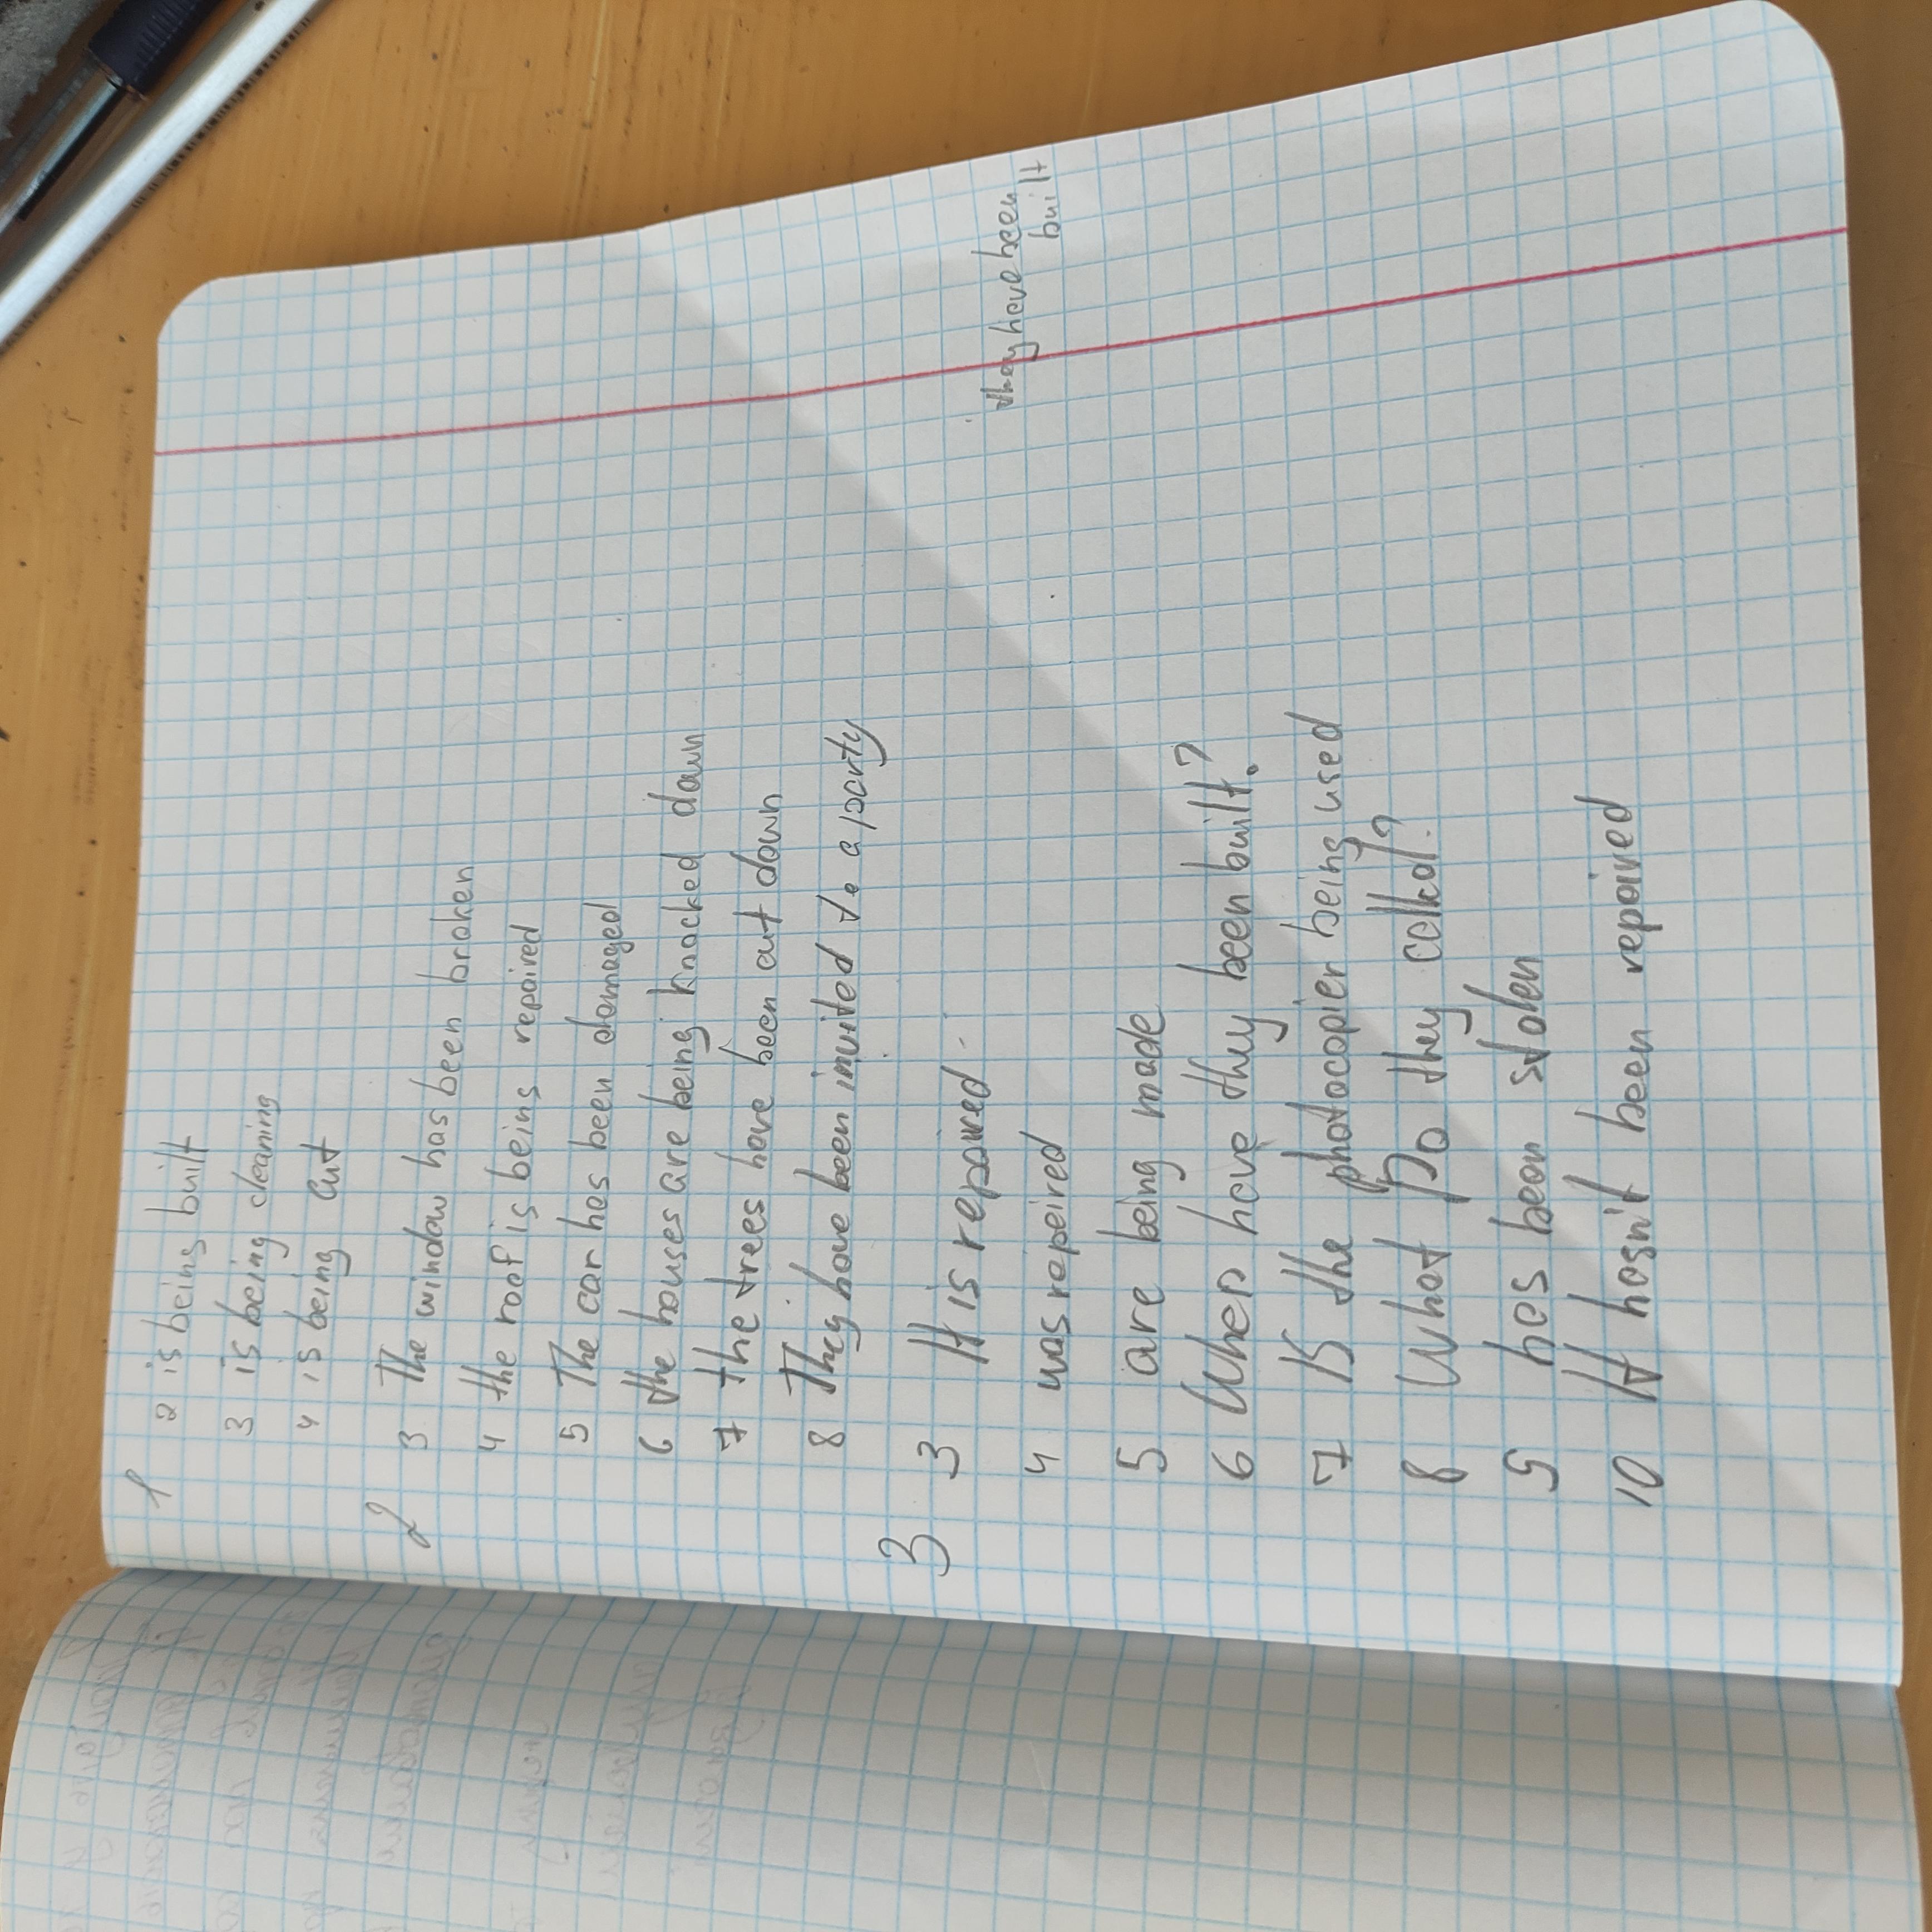 1
2 is being built
3 is being cleaning
4 is being cut
2
3 The window has been broken
4 the roof is being repaired
5 The car has been damaged
6 the houses are being knocked down
7 the trees have been cut down
8 They have been invited to a party
3
3 It is repaired
4 was repeired
5 are being made
6 When have they been built?
7 Is the photocopier being used
8 What Do they called?
9 has been stolen
10 It hasn't been repaired
they have been
built